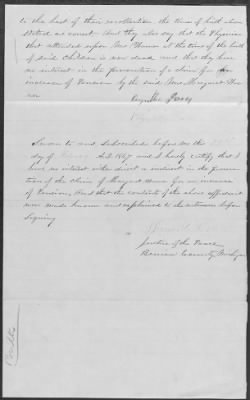 to the best of their recollection the time of birth above
stated is correct. And they also say that the Physician
that attended upon Mrs at the time of the birth
of said children is now dead and that they have
no interest in the prosecution of a claim for an
increase of Pension by the said Mrs Margaret
Sworn to and subscribed before me this
day of A.D. 1867 and I hereby certify that I
have no interest either direct or indirect in the prosecu
tion of the claim of Margaret for an increase
of Pension, And that the contents of the above affidavit
were made known and explained to the witnesses before
signing
Justice of the Peace
County Michigan